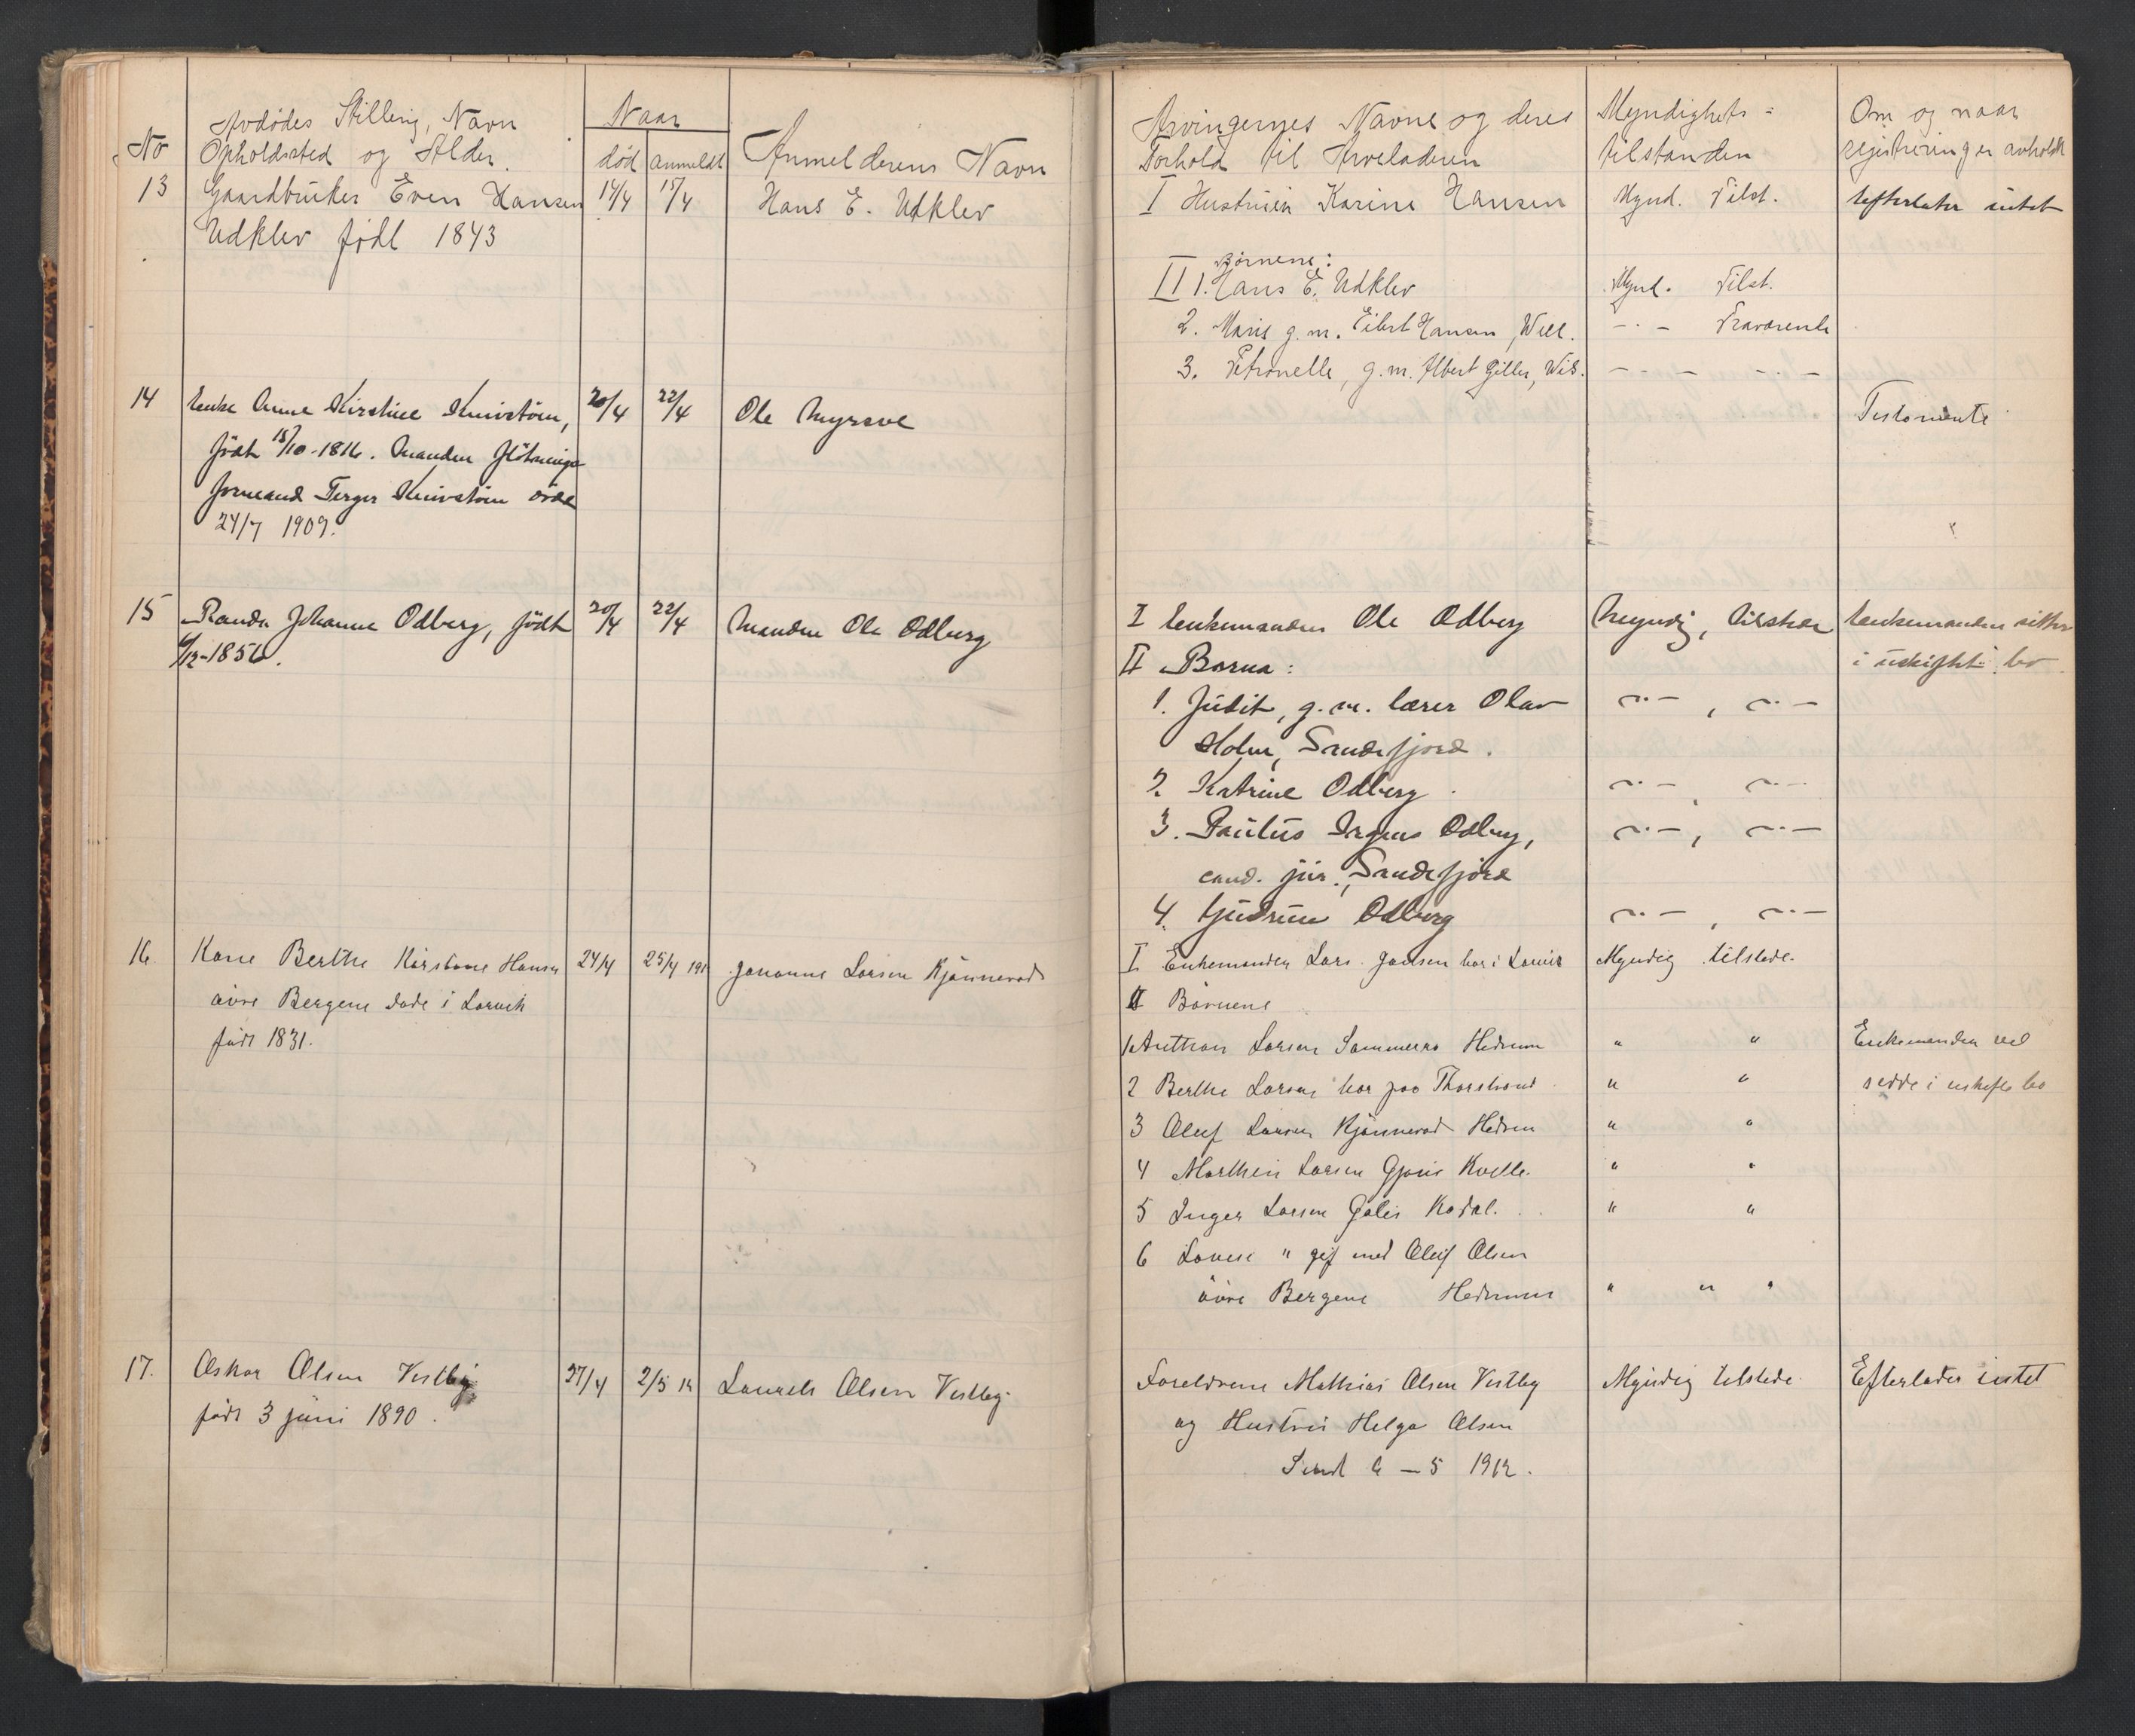 No
Avdødes Stilling, Navn
Opholdssted og Alder.
Naar
død
anmeldt
Anmelderens Navn
13
Gaardbruker Even Hansen
Udklev född 1843
14/4
15/4
Hans E. Udklev
14
Enke Anne Kirstine
født 15/10-1816. Manden
formand Terger død
24/7 1909.
20/4
22/4
Ole Myrsve
15
Johanne Odberg, født
/12-1856.
20/4
22/4
Manden Ole Odberg
16.
Kone Berthe Kirstine Hansen
övre Bergene døde i Larvik
född 1831.
24/4
25/4 191
Johanne Larsen Kjønnerød
17.
Oskar Olsen Vestby
född 3 juni 1890.
27/4
2/5 12
Laurets Olsen Vestby
Arvingernes Navne og deres
Forhold til Arveladeren
Myndighets-
tilstanden
Om og naar
registrering er avholdt
I Hustruen Karine Hansen
Mynd. Tilst.
Efterlater intet
Børnene:
II 1. Hans E. Udklev
Mynd. Tilst.
2. Maris g. m. Eilert Hansen,
-"- Fraværende
3. Petronelle, g. m. Albert
-"- -"-
Testamente
I Enkemanden Ole Odberg
Myndig, tilstede
Enkemanden sitter
II Barna:
i uskiftet bo
1. Judit, g. m. lærer Olav
Holm, Sandefjord.
2. Katrine Odberg.
3. Paulus Odberg,
cand. jur., Sandefjord
4. Gudrun Odberg
I Enkemanden Lars Jansen bor i Larvik
Myndig tilstede.
II Börnene
1 Anthon Larsen Hedrum
" "
Enkemanden vil
2 Berthe Larsen bor paa Thorstrand
" "
sidde i uskifte bo
3 Oluf Larsen Kjønnerød Hedrum
" "
4 Marthin Larsen Kvelle.
" "
5 Inger Larsen Kodal.
" "
6 Lovise " gif med Oluf Olsen
övre Bergene Hedrum
" " "
Foreldrene Mathias Olsen Vestby
Myndig tilstede
Efterlader intet
og Hustru Helga Olsen
Sendt 6 — 5 1912.